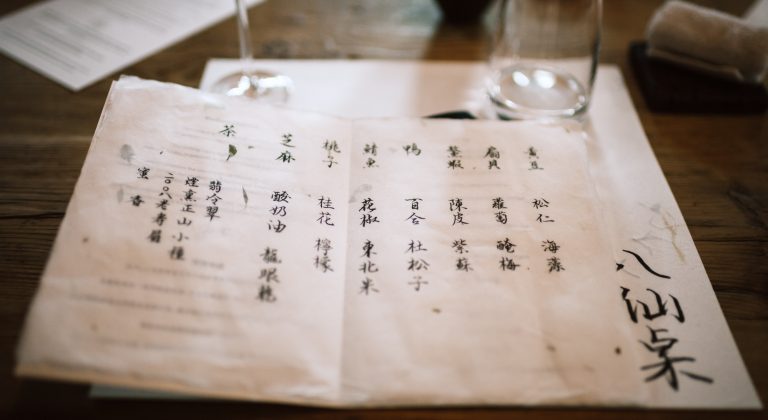 八仙桌
黃豆 松仁 海藻
扇貝 蘿蔔 醃梅
螯蝦 陳皮 紫蘇
鴨 百合 杜松子
魚 花椒 東北米
桃子 桂花 檸檬
芝麻 酸奶油 龍眼乾
茶
翡冷翠
煙熏正山小種
二〇〇八老壽眉
蜜香